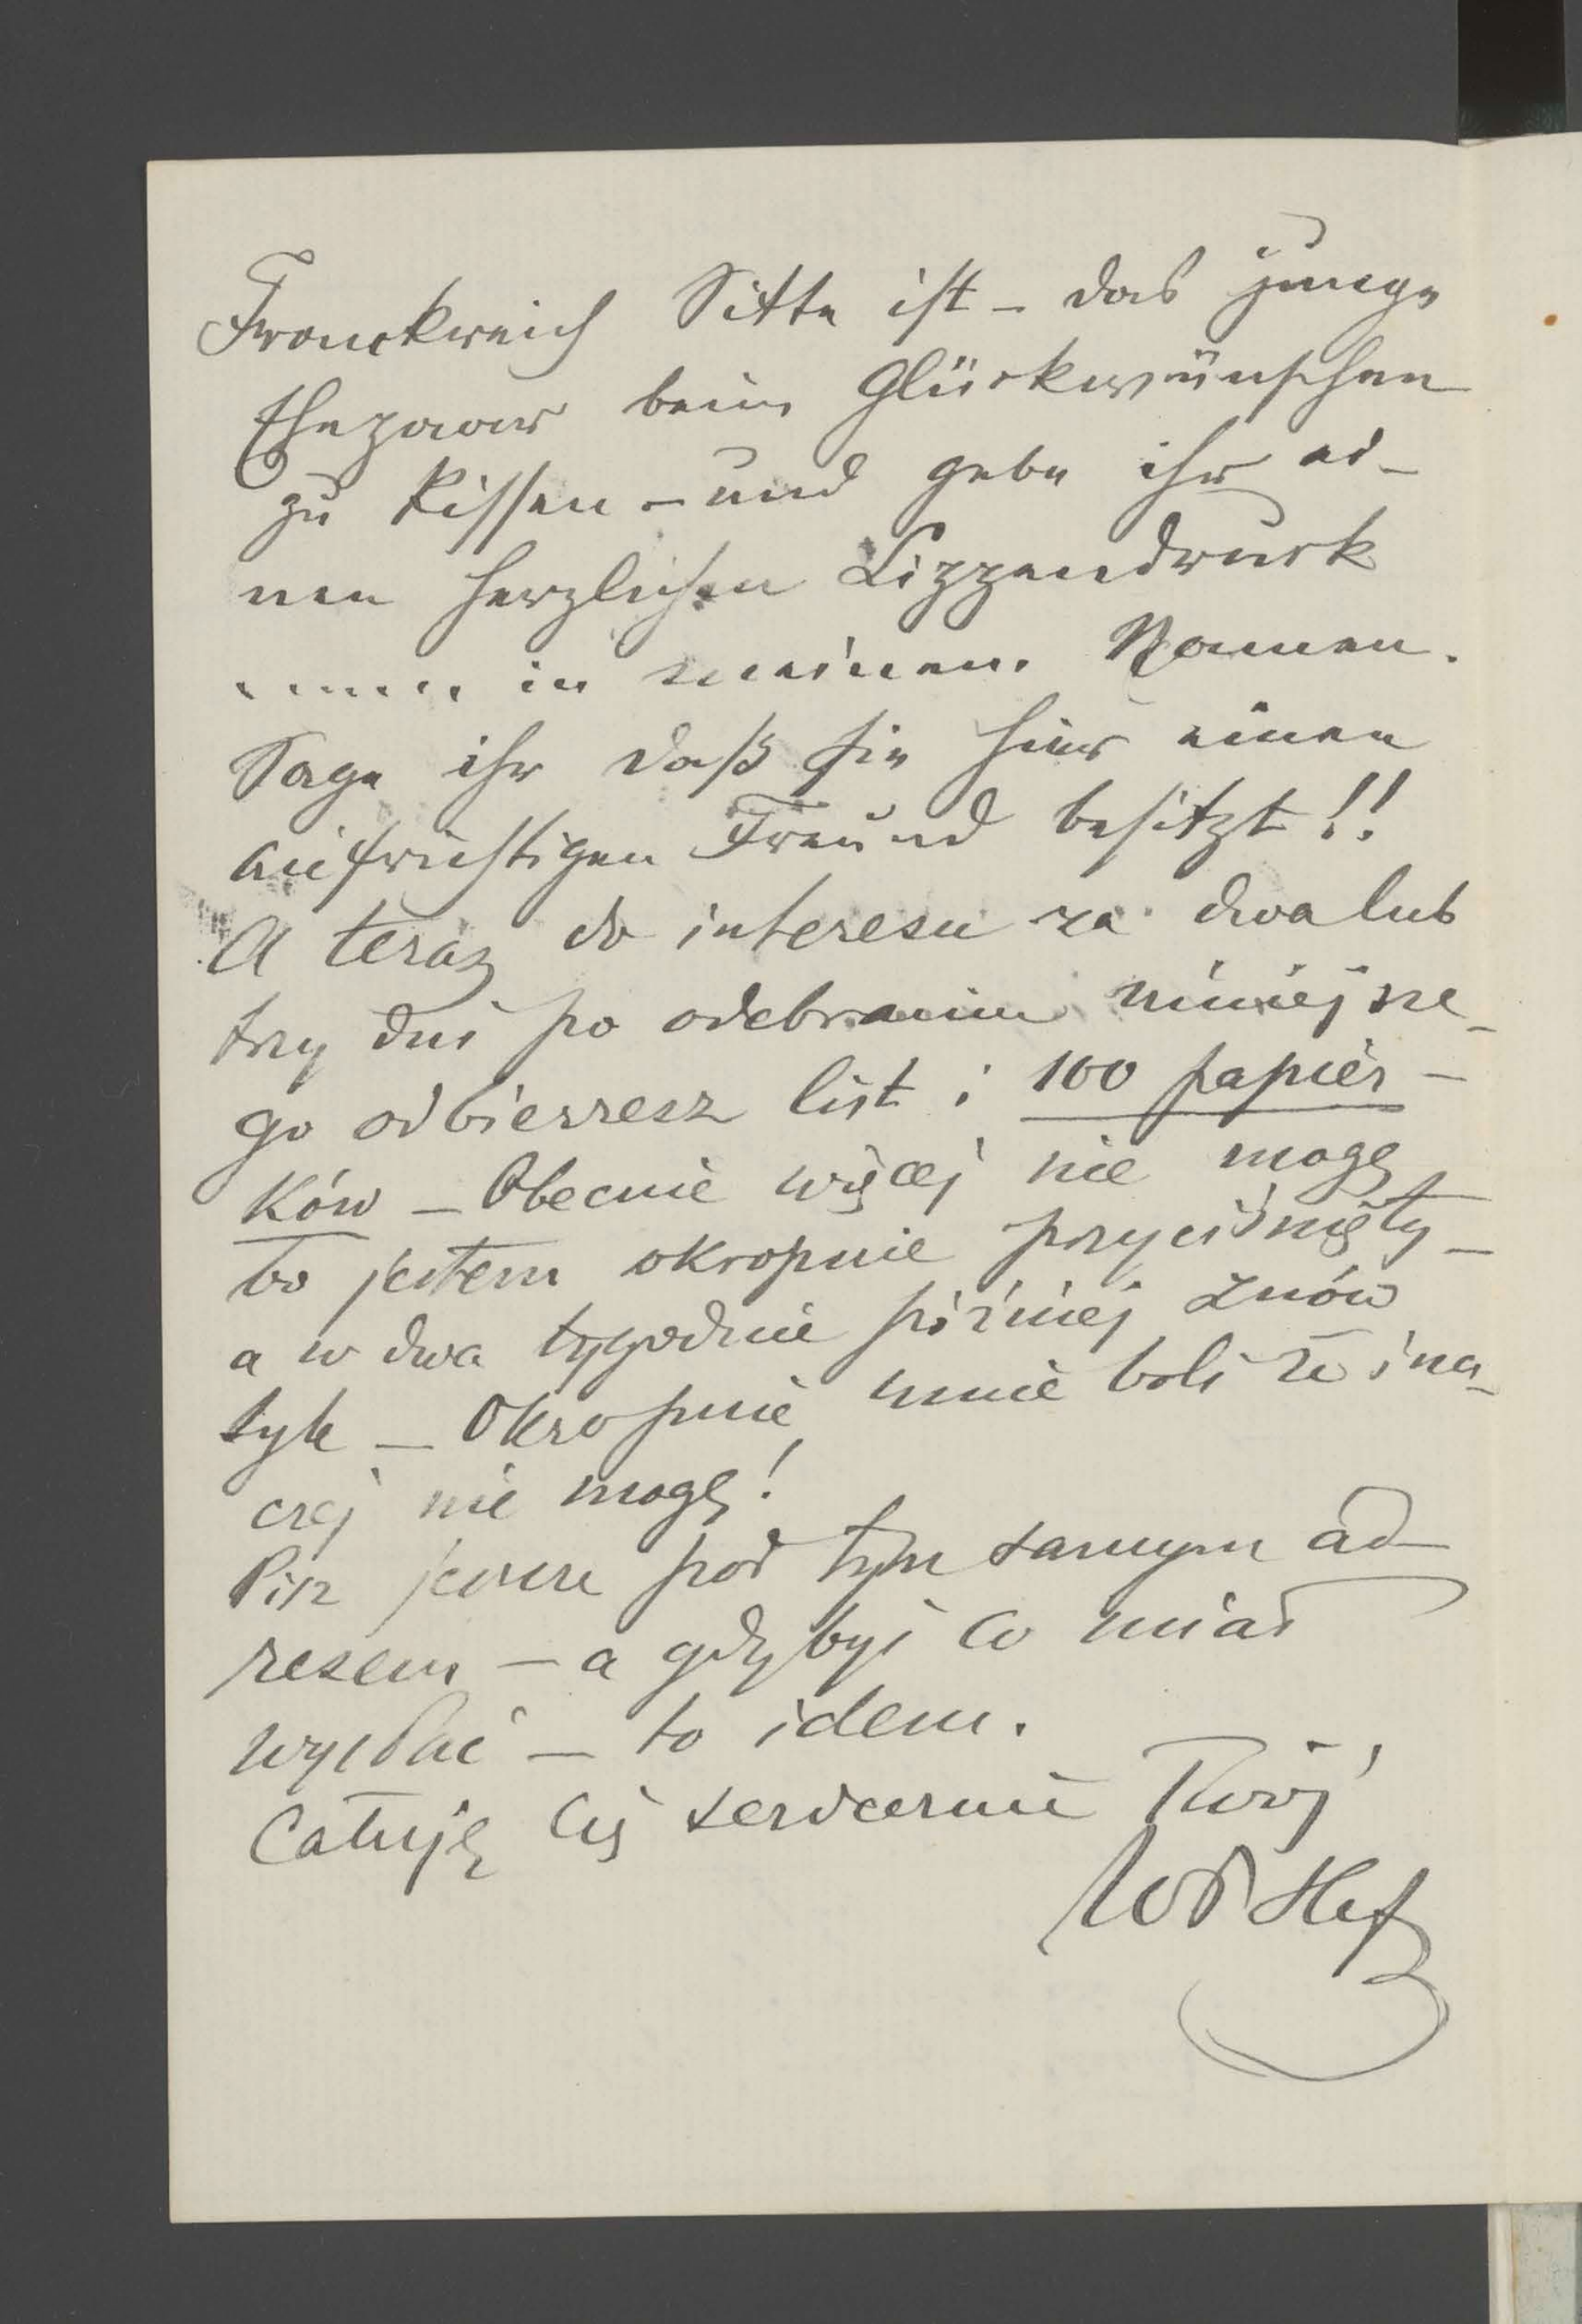 Franckreich Sitte ist – das junge
Ehepaar beim Glückwünschen
zu kissen – und gebe ihr ei-
nen herzlichen Lippendruck
....... in meinem Namen.
Sage ihr daß sie hier einen
aufrichtigen Freund besitzt!!
A teraz do interesu za dwa lub
trzy dni po odebraniu niniejsze-
go odbierzesz list i 100 papier-
ków – Obecnie więcej nie mogę
bo jestem okropnie przyciśnięty –
a w dwa tygodnie później znów
tyle – Okropnie mnie boli że ina-
czej nie mogę!
Pisz jeszcze pod tym samym ad-
resem – a gdybyś co miał
wysłać – to idem.
Całuję Cię serdecznie Twój